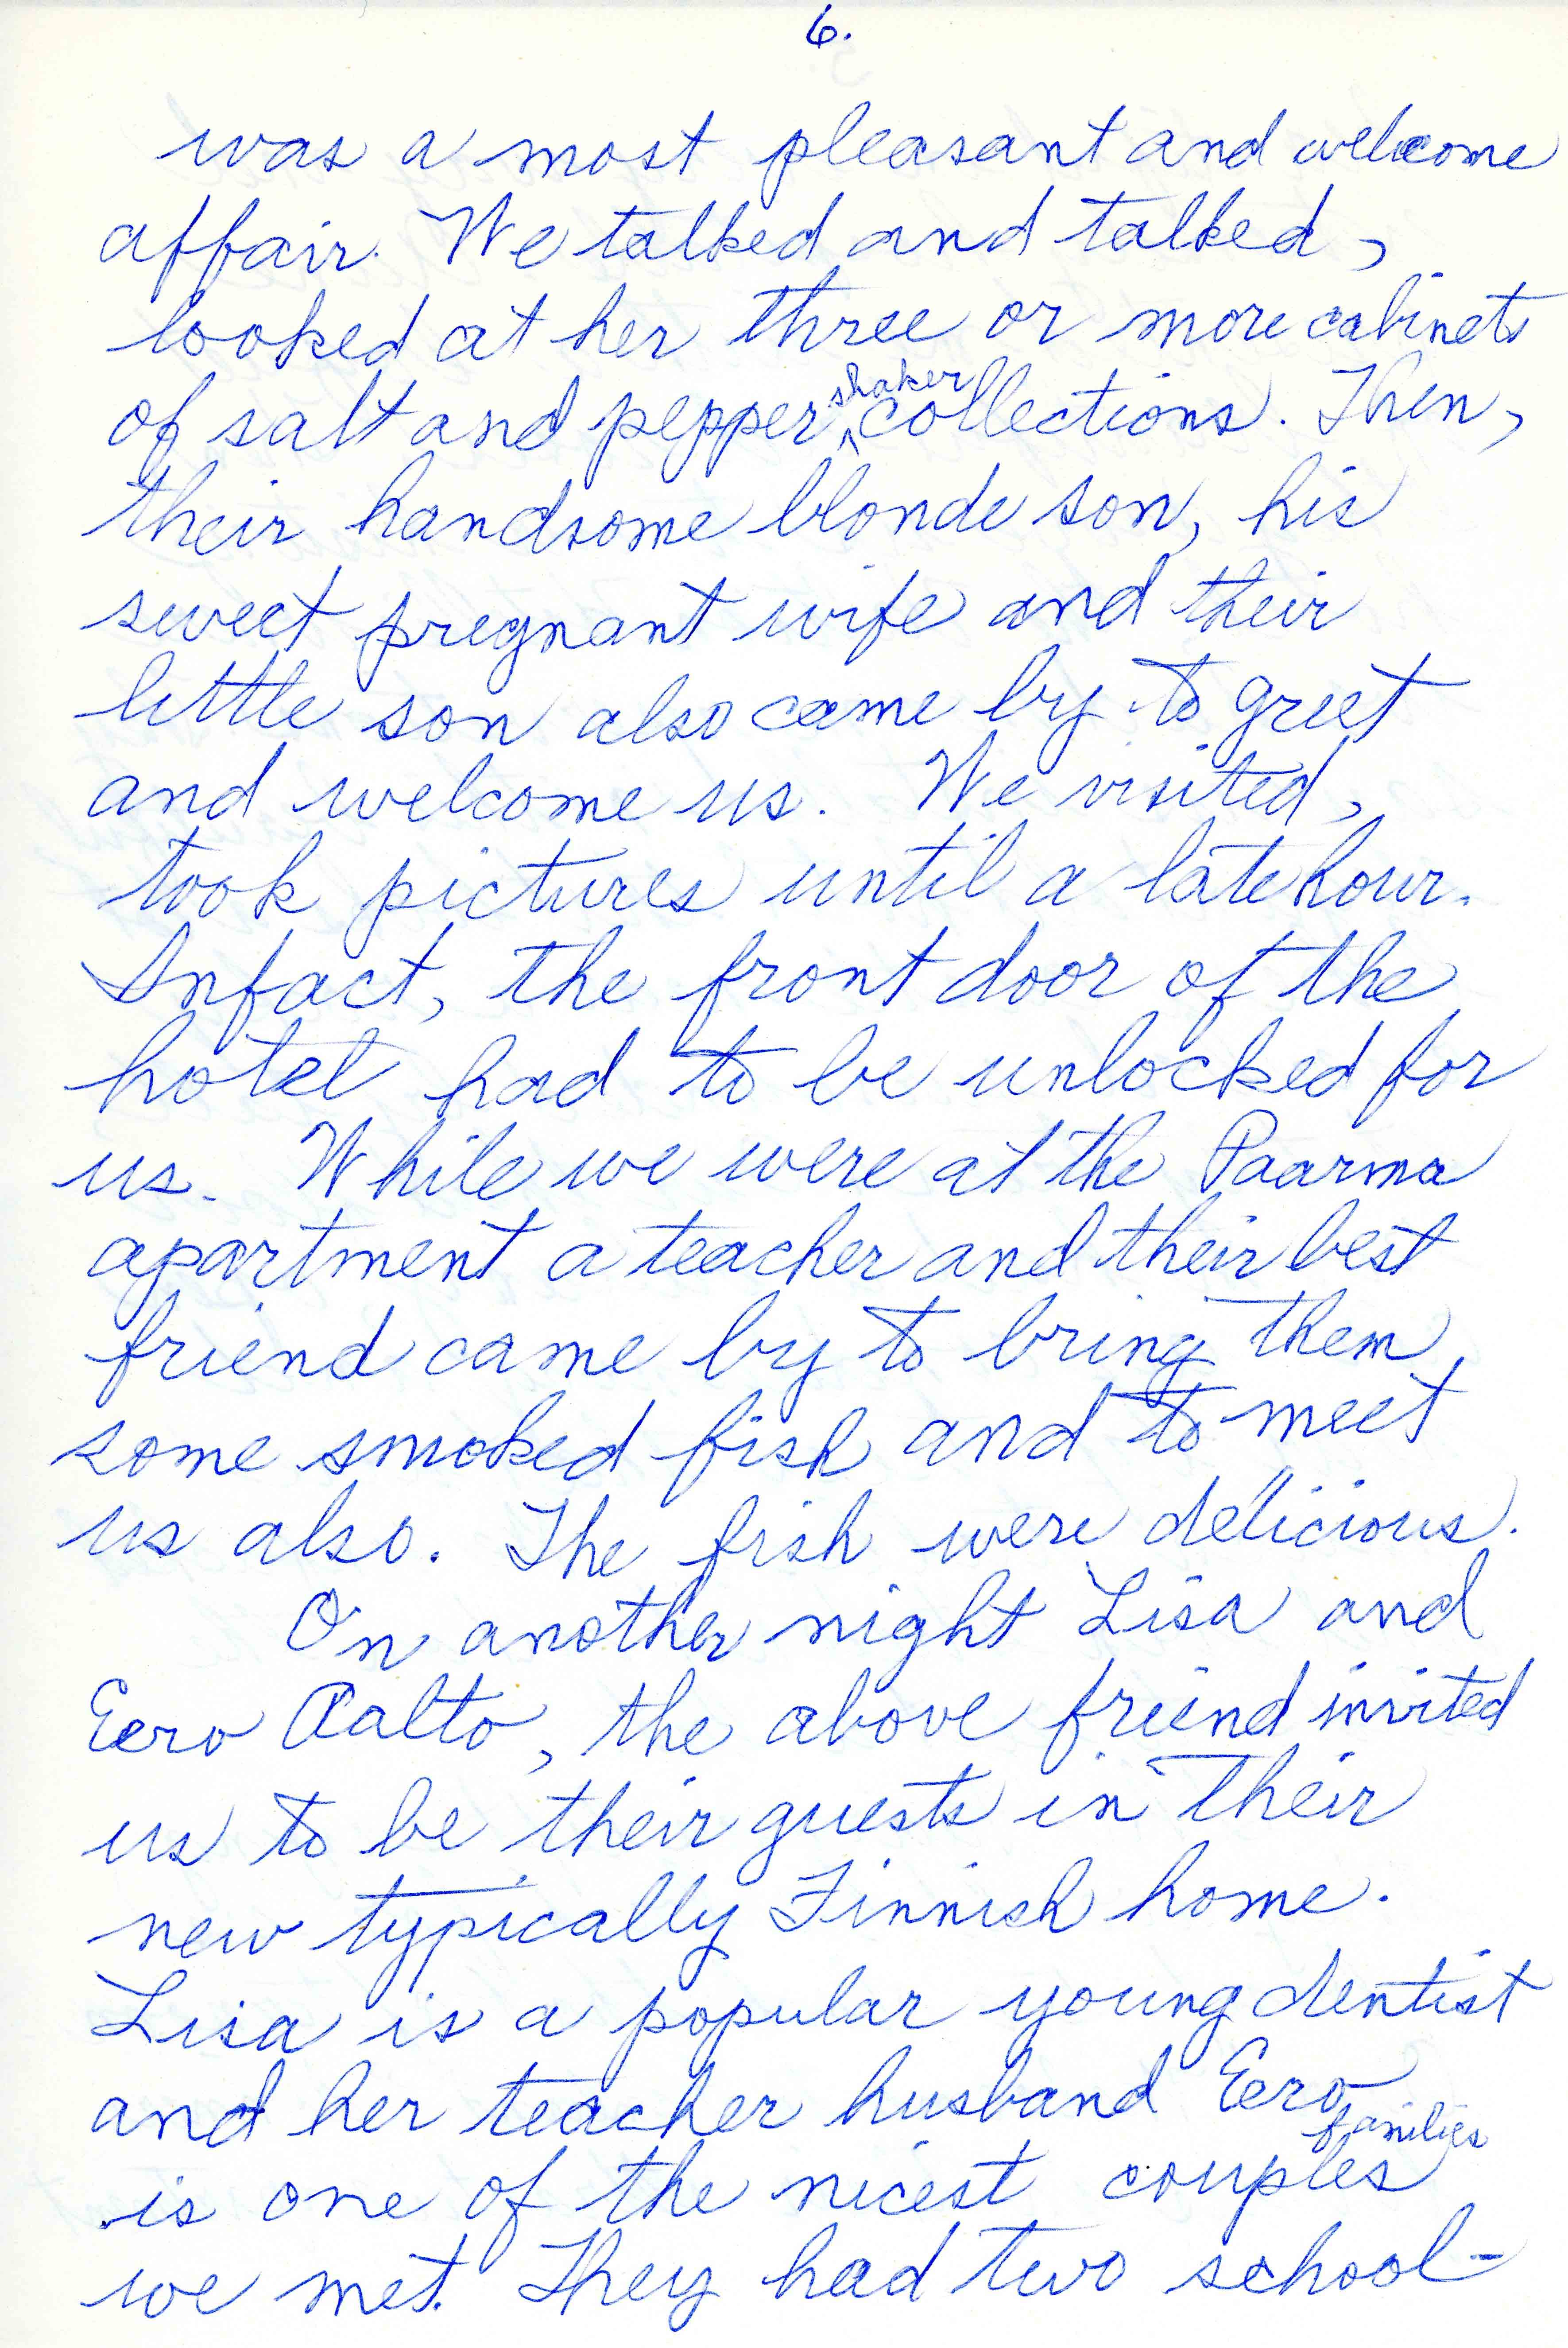 6.
was a most pleasant and welcome
affair. We talked and talked,
looked at her three or more cabinets
of salt and pepper shaker collections. Then,
their handsome blonde son, his
sweet pregnant wife and their
little son also came by to greet
and welcome us. We visited,
took pictures until a late hour.
Infact, the front door of the
hotel had to be unlocked for
us. While we were at the Paarma
apartment a teacher and their best
friend came by to bring them
some smoked fish and to meet
us also. The fish were delicious.
On another night Lisa and
Eero Aalto, the above friend invited
us to be their guests in their
new typically Finnish home.
Lisa is a popular young dentist
and her teacher husband Eero
families
is one of the nicest couples
we met. They had two school-